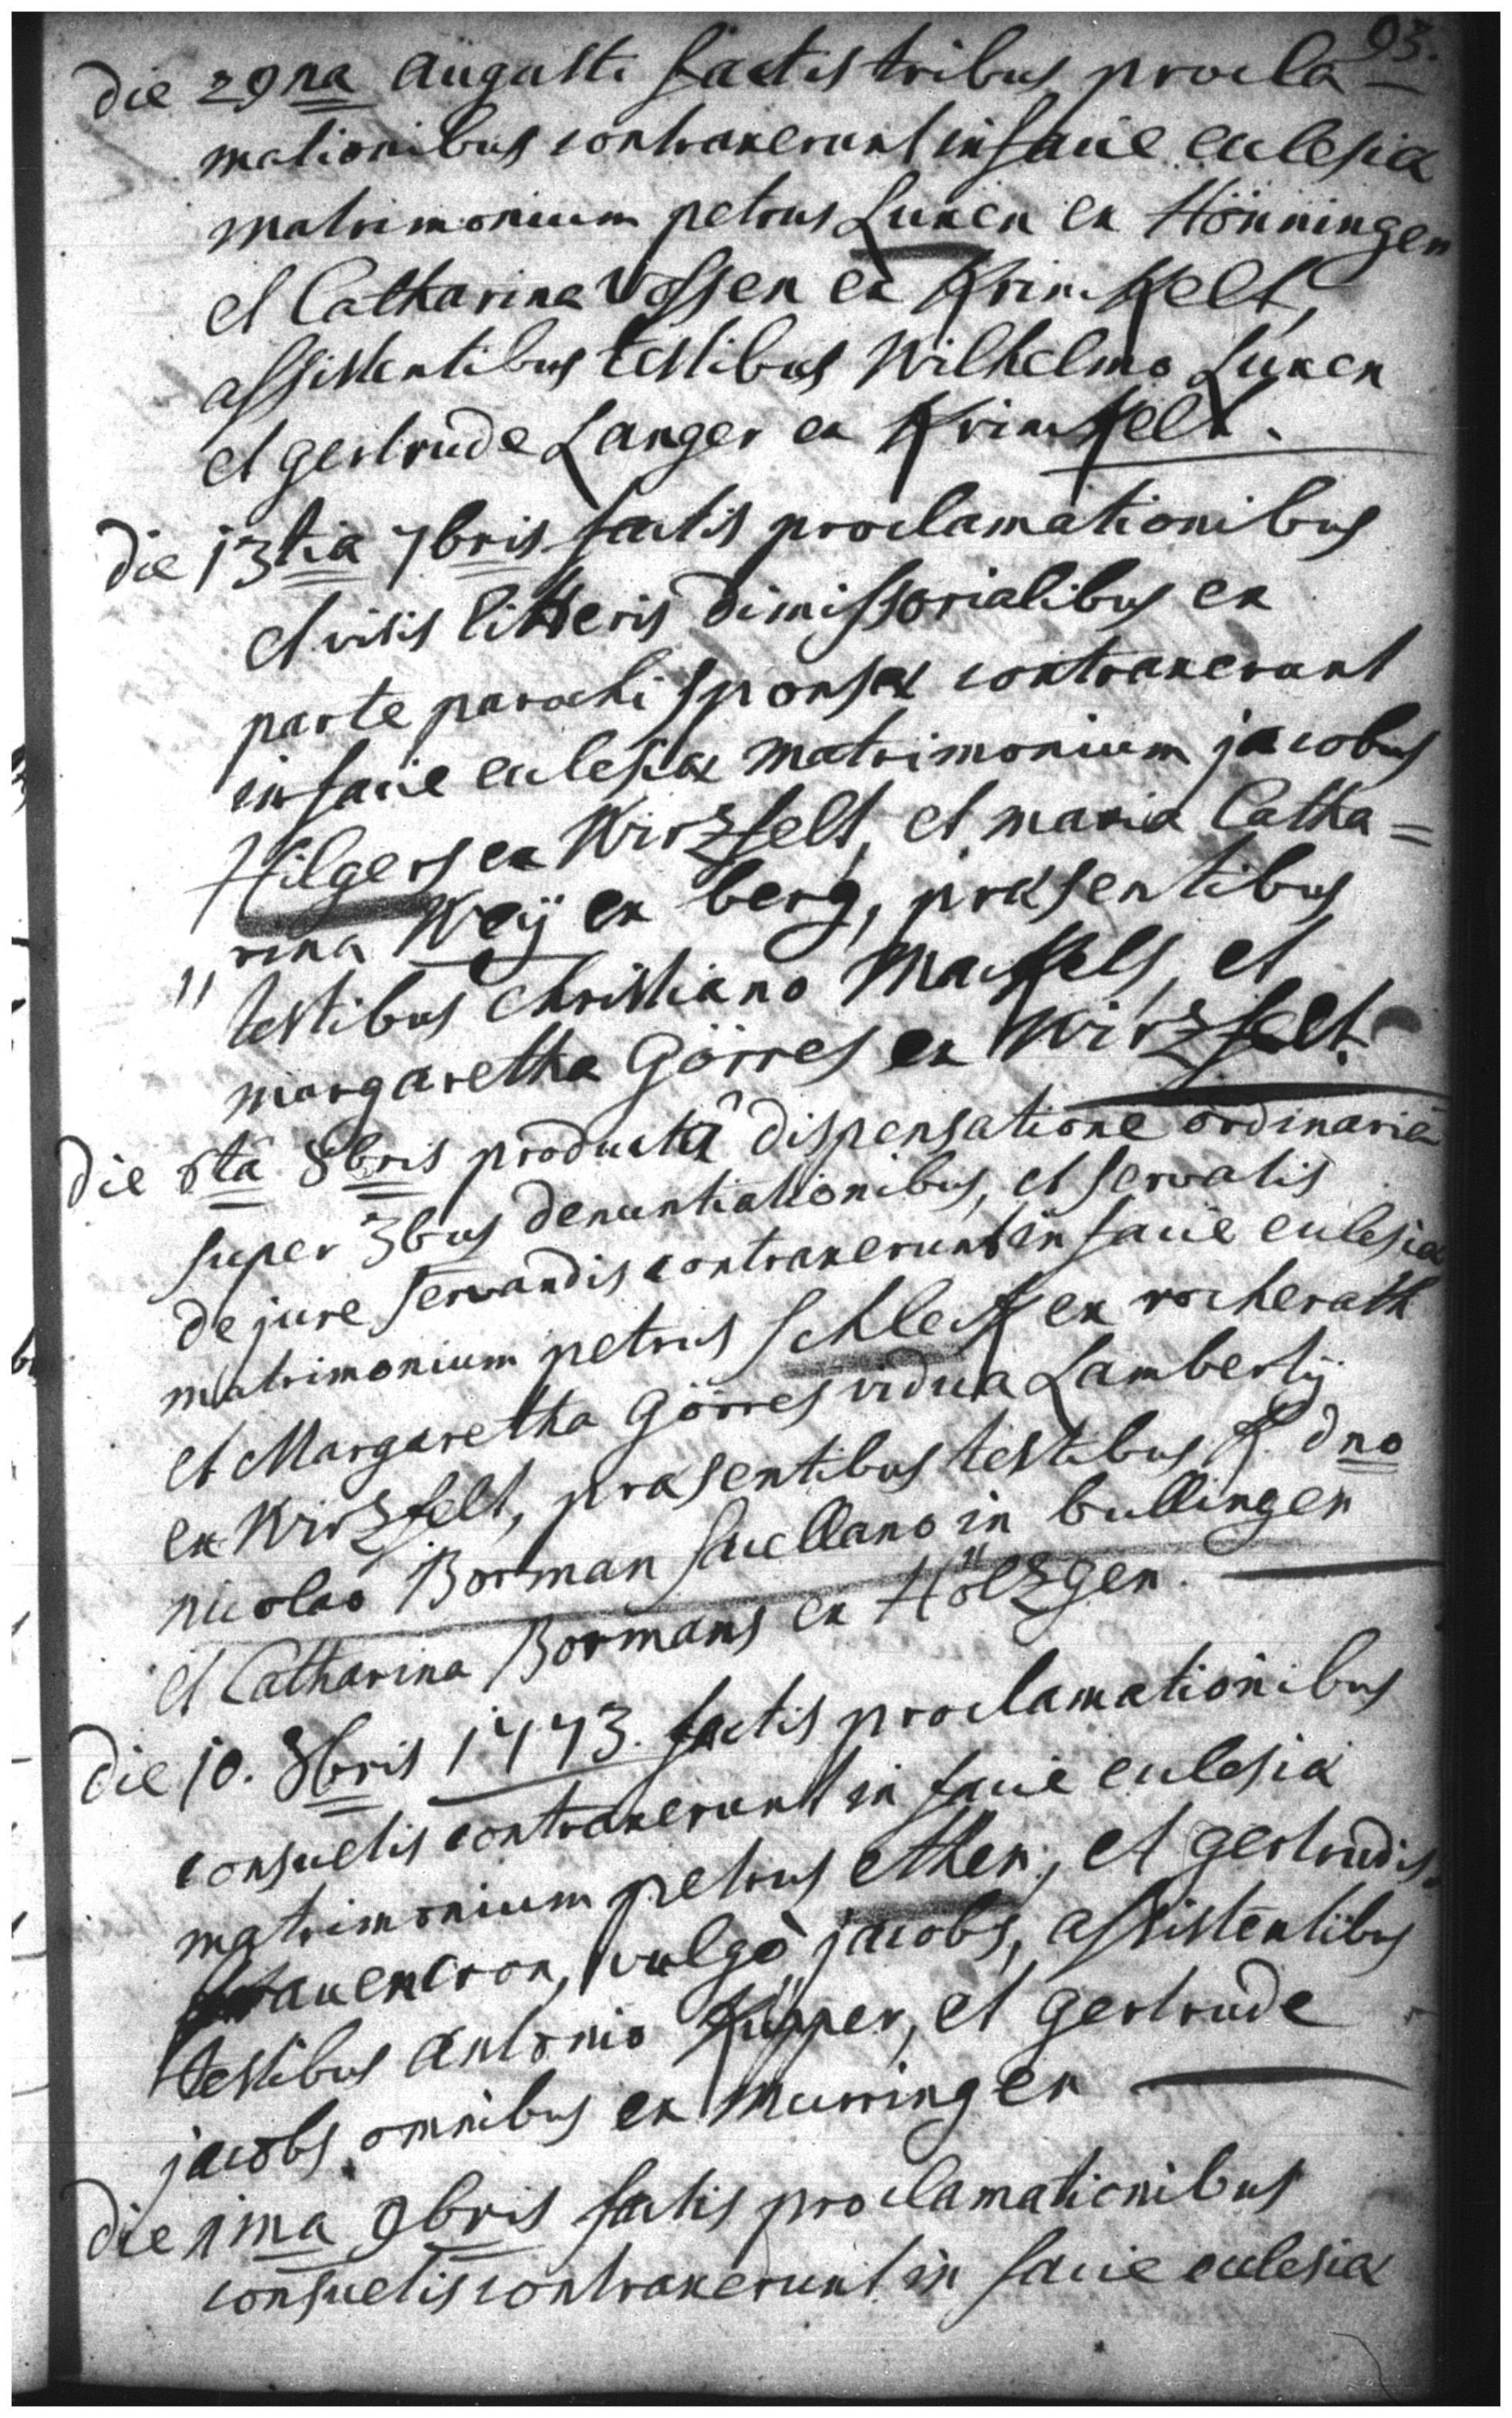 93.
Die 29na augusti factis tribus procla-
mationibus contraxerunt in facie ecclesiæ
matrimonium petrus Luxen ex Hönningen
et Catharina Vossen ex Krinckelt,
assistentibus testibus Wilhelmo Luxen
et gertrude Langer ex Krinckelt.
Die 13tia 7bris factis proclamationibus
et visis litteris dimissorialibus ex
parte parochi sponsæ contraxerunt
in facie ecclesiæ matrimonium jacobus
Hilgers ex Wirzfelt, et maria Catha=
rina Weÿ ex berg, præsentibus
testibus Christiano Mackels, et
margaretha Görres ex Wirzfelt.
Die 8bris productâ dispensatione ordinariâ
super 3bus denuntiationibus, et servatis
de jure servandis contraxerunt in facie ecclesiæ
matrimonium petrus Schleck ex rocherath
et Margaretha Görres vidua Lambertÿ
ex Wirzfelt, præsentibus testibus R. dno
nicolao Borman sacellano in bullingen
et Catharina Bormans ex Hölzgen.
Die 10. 8bris 1773. factis proclamationibus
consuetis contraxerunt in facie ecclesiæ
matrimonium petrus ethen, et gertrudis
vulgò jacobs, assistentibus
testibus antonio Küpper, et gertrude
jacobs omnibus ex murringen
Die 1ma 9bris factis proclamationibus
consuetis contraxerunt in facie ecclesiæ